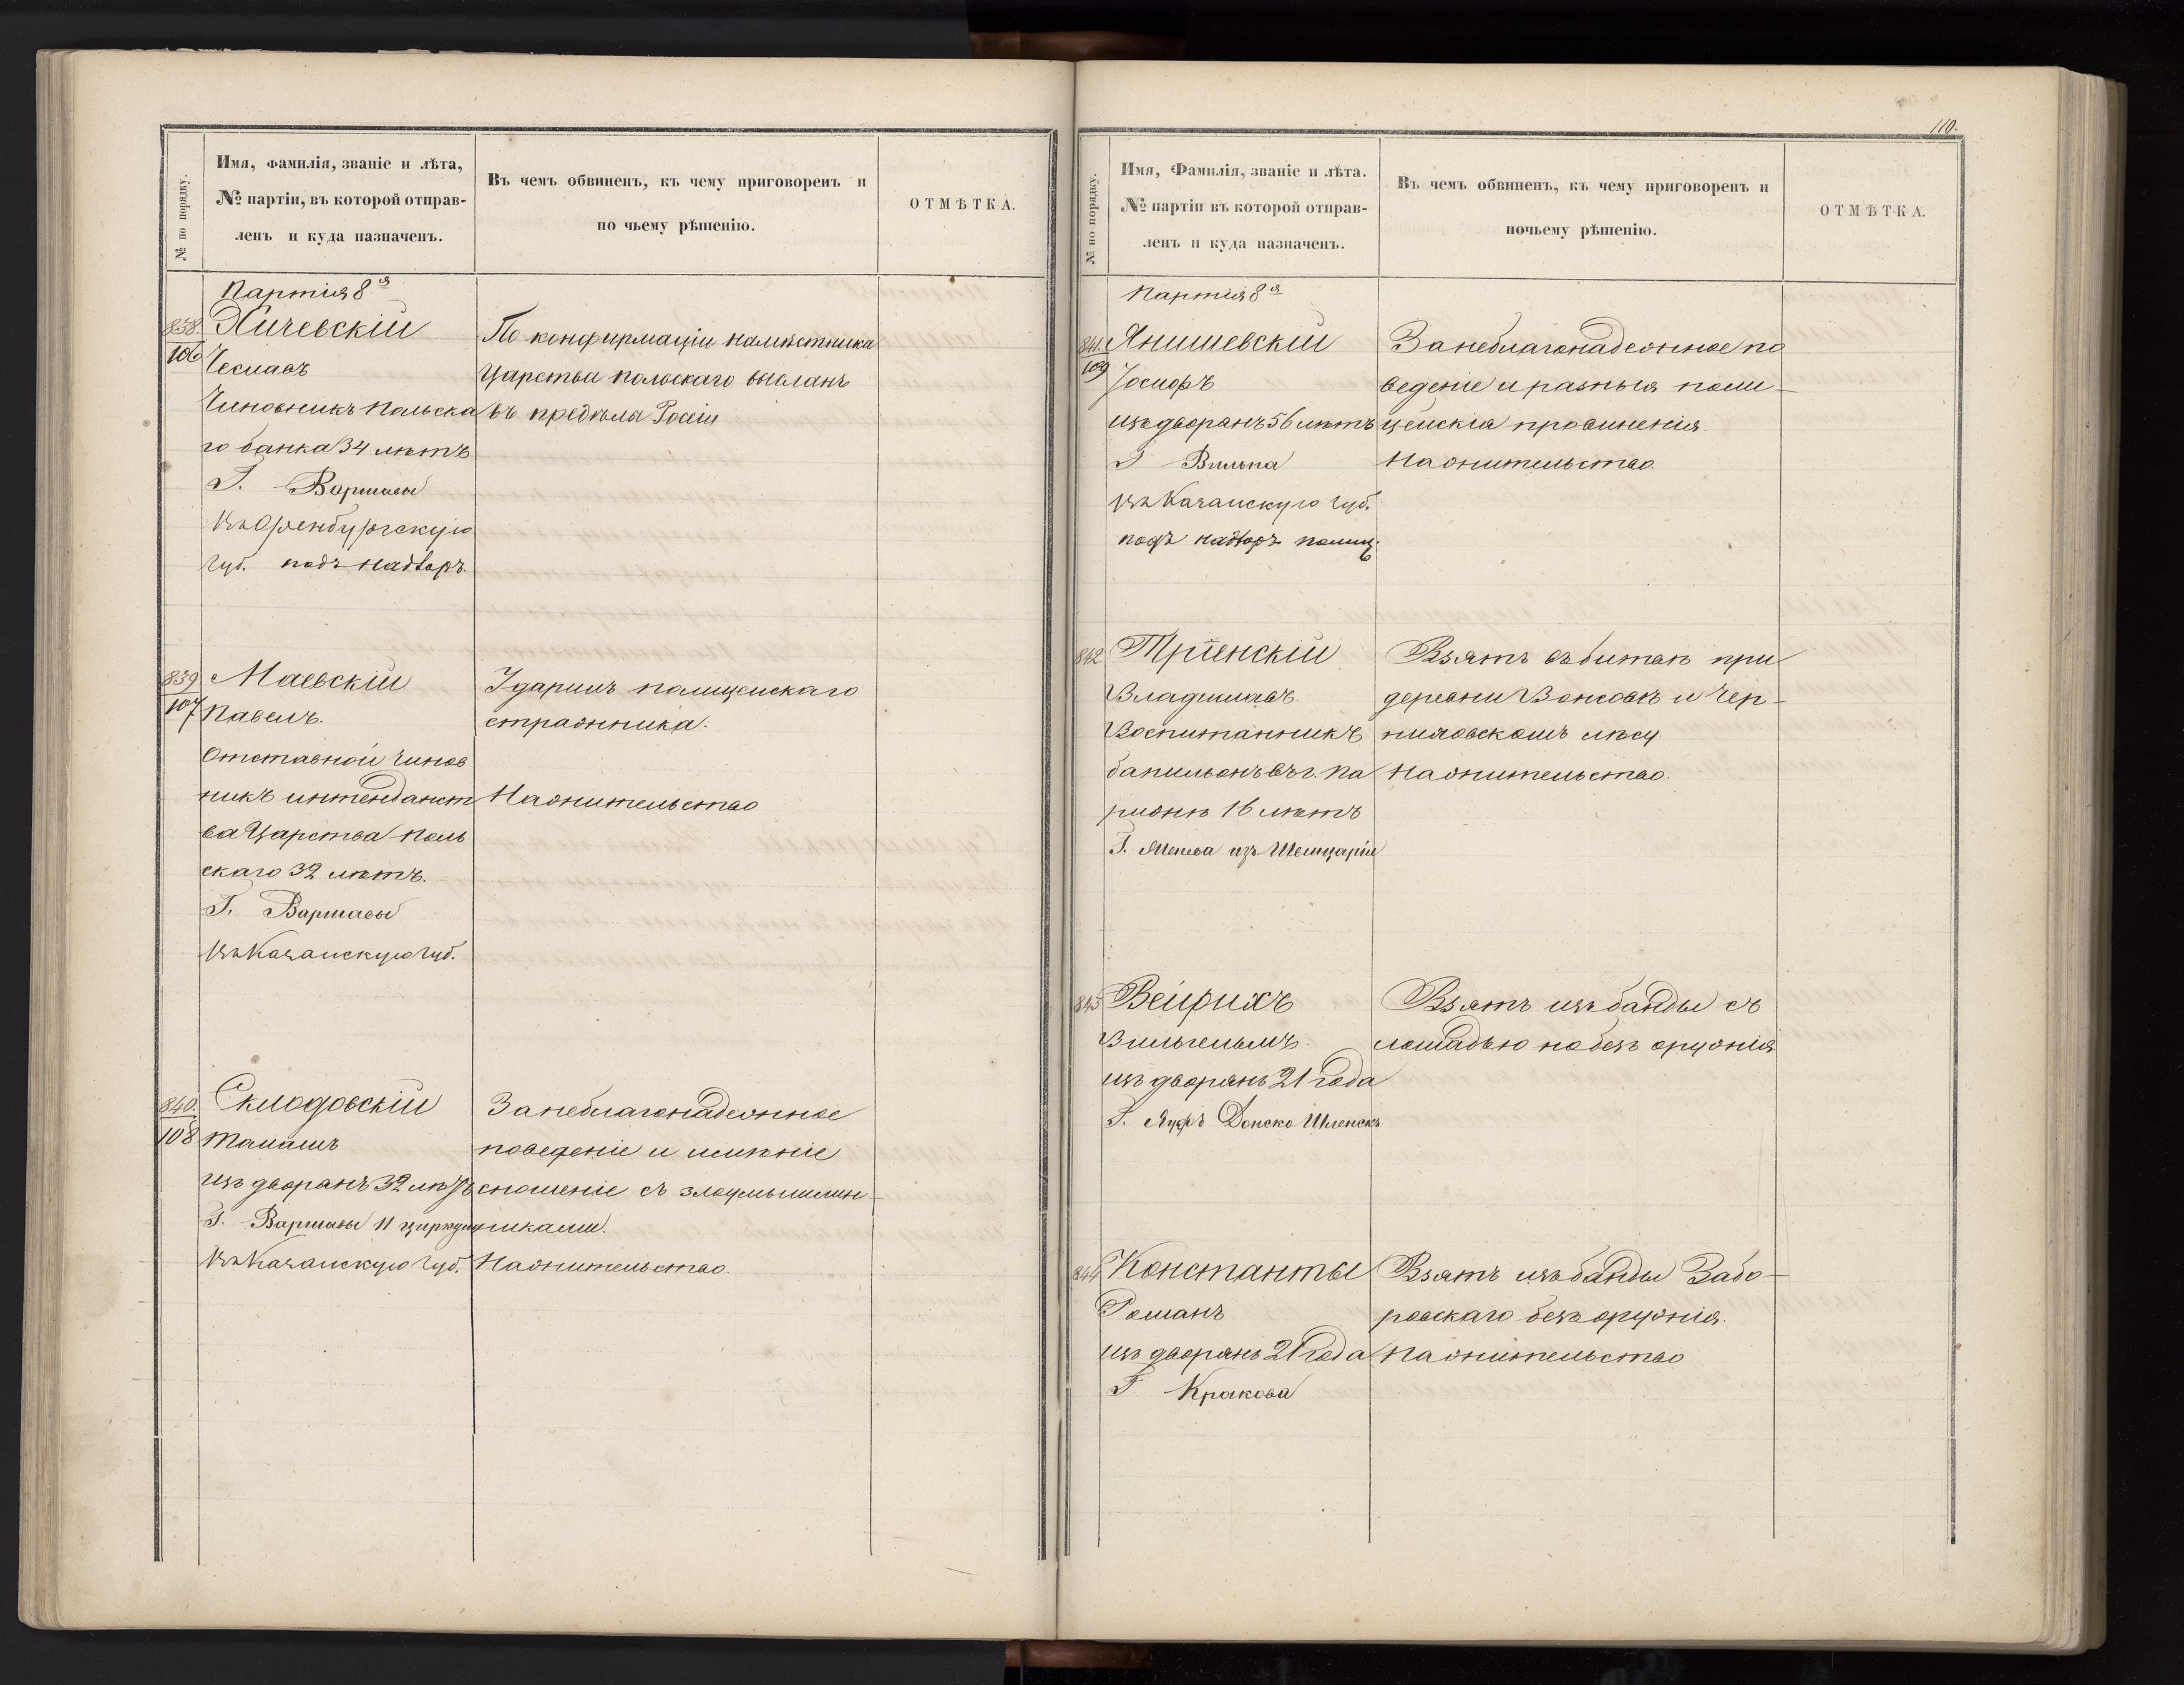 № по порядку.
Имя, фамилія, званіе и лѣта,
№ партіи, въ которой отправ-
ленъ и куда назначенъ.
Въ чемъ обвиненъ, къ чему приговоренъ и
по чьему рѣшенію.
ОТМѢТКА.
Партія 8я
838.
106
Хичевскій
Чеславъ
Чиновникъ Польска
го банка 34 лѣтъ
Г. Варшавы
Въ Оренбургскую
Губ. подъ надзоръ.
По конфирмаціи намѣстника
Царства польскаго высланъ
въ предѣлы Россіи
839
107
Маевскій
Павелъ.
Отставной чинов
никъ интендантст
ва Царства Поль
скаго 32 лѣтъ.
Г. Варшавы
Въ Казанскую Губ.
Ударилъ полицейскаго
стражника.
На жительство
840.
108
Склодовскій
Томашъ
изъ дворянъ 32 лѣтъ
Г. Варшавы 11 циркула
Въ Казанскую Губ.
За неблагонадежное
поведеніе и имѣніе
сношеніе съ злоумышлен-
никами.
На жительство.
110.
№ по порядку.
Имя, Фамилія, званіе и лѣта.
№ партіи въ которой отправ-
ленъ и куда назначенъ.
Въ чемъ обвиненъ, къ чему приговоренъ и
почьему рѣшенію.
ОТМѢТКА.
Партія 8я
841.
109
Янишевскій
Іосифъ
изъ дворянъ 56 лѣтъ
Г Вильна
Въ Казанскую Губ.
подъ надзоръ полиц.
За неблагонадежное по
веденіе и разныя поли-
цейскія провиненія.
На жительство.
842
Тріенскій
Владиславъ.
Воспитанникъ
батильонъ въ г. Па
рижѣ 16 лѣтъ
Г. Женева изъ Швейцаріи
Взятъ въ битвѣ при
деревни Вонсовѣ и Чер-
нияовскомъ лѣсу.
На жительство.
843
Вейрихъ
Вильгельмъ.
изъ дворянъ 21 года
Взятъ изъ банды съ
лошадью но безъ оружія
844
Константы
Романъ
изъ дворянъ 21 года
Г Кракова
Взятъ изъ банды Забо-
ровскаго безъ оружія.
На жительство